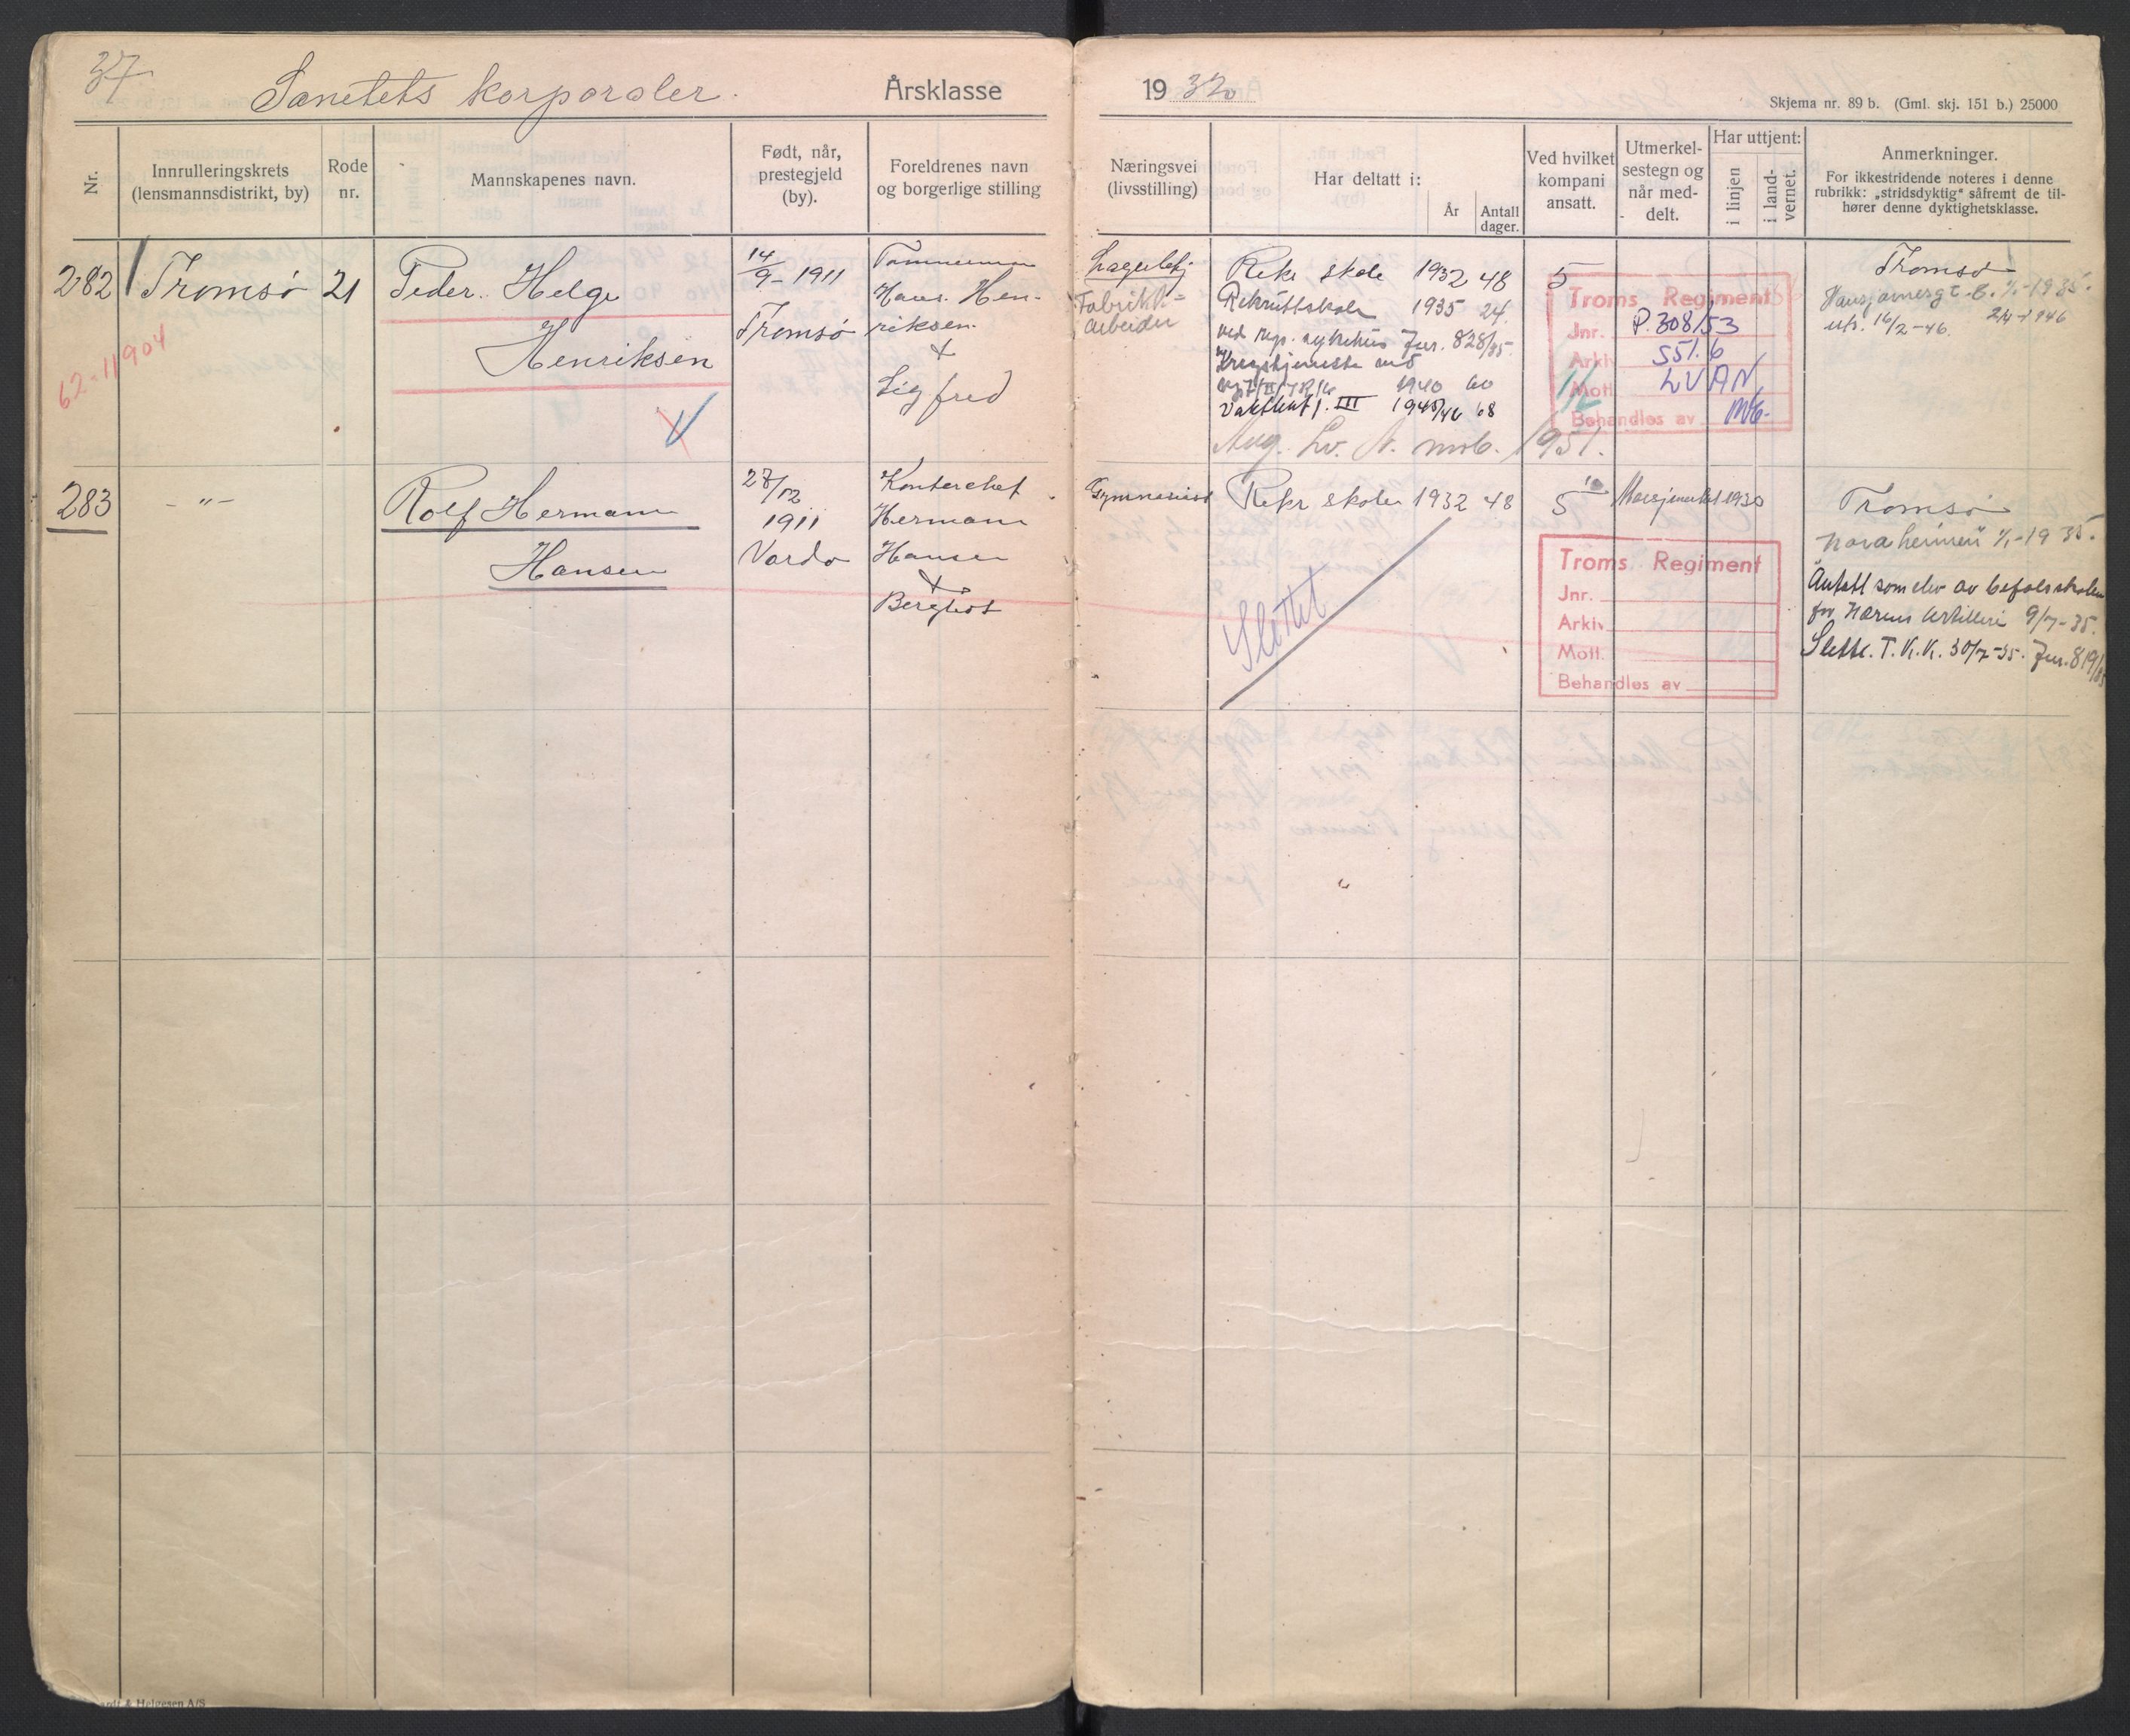 37
Sanitets korporaler.
Årsklasse
1932
Skjema nr. 89 b. (Gml. skj. 151 b.) 25000
Nr.
Innrulleringskrets
(lensmannsdistrikt, by)
Rode
nr.
Mannskapenes navn.
Født, når,
prestegjeld
(by).
Foreldrenes navn
og borgerlige stilling
Næringsvei
(livsstilling)
Har deltatt i:
År
Antall
dager.
Ved hvilket
kompani
ansatt.
Utmerkel-
sestegn og
når med-
delt.
Har uttjent:
i linjen
i land-
vernet.
Anmerkninger.
For ikkestridende noteres i denne
rubrikk: „stridsdyktig" såfremt de til-
hører denne dyktighetsklasse.
282
Tromsø
21
62-11904
Peder. Helge
Henriksen
14/9-1911
Tromsø
Tømmerman
Hans. Hen-
riksen.
+
Sigfred
Lagerbetj
Fabrikk-
arbeider
Rekr skole 1932 48
Rekruttskole 1935 24
ved rep. sykehus Jnr. 828/35
Krigstjeneste ved
1940 60
Vaktbat j. III 1945/46 68
Aug. Lv. A. mob. 1951.
5
Troms Regiment
Jnr. P.308/53
Arkiv 551.6
Mott. LVAN
Behandles av
Tromsø
1/1-1935.
utr. 16/2-46.
283
-"-
Rolf Hermann
Hansen
27/12
1911
Vardø
Kontorchef
Hermann
Hansen
+
Bergliot
Gymnasiast
Rekr skole 1932 48
Slettet
5
Marsjmerket 1930
Troms Regiment
Jnr.
Arkiv
Mott.
Behandles av
Tromsø
1/1-1935.
Antatt som elev av befalsskolen
for Hærens Artilleri 9/7-35.
Slettet. T.K.K. 30/7-35. Jnr. 819/35
& Helgesen A/S